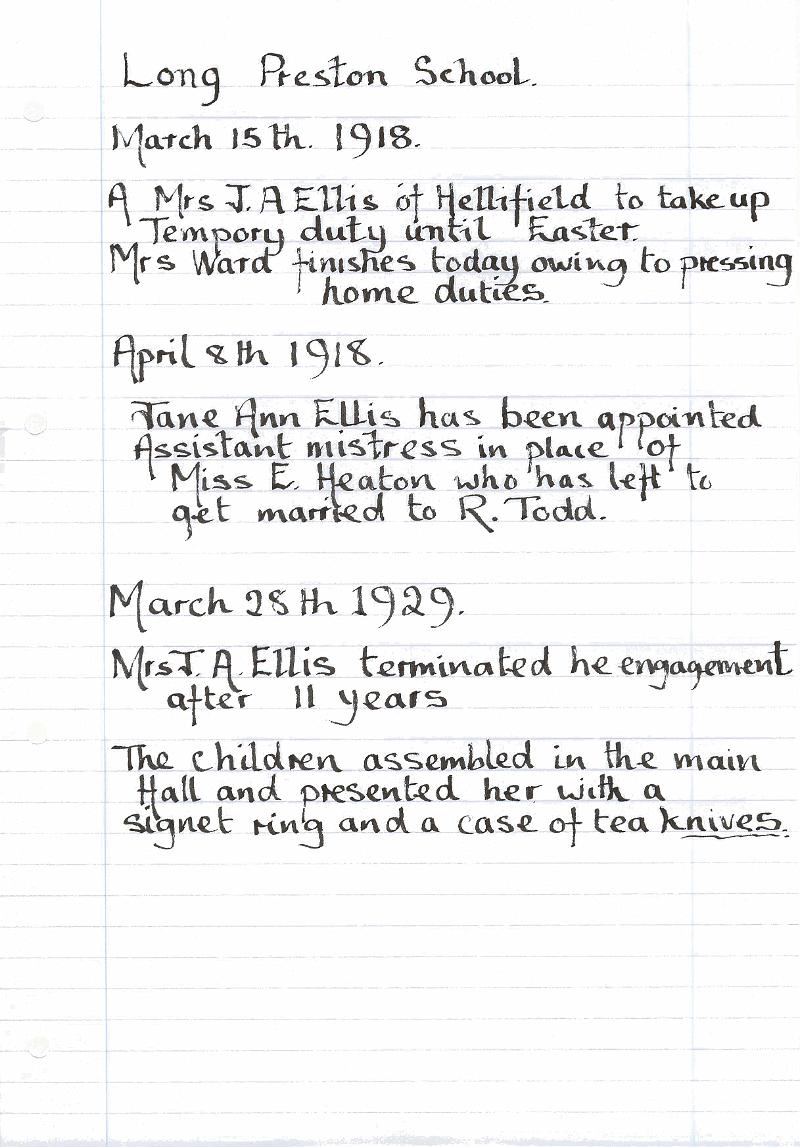 Long Preston School.
March 15th. 1918.
A Mrs J. A Ellis of Hellifield to take up
Tempory duty until Easter.
Mrs Ward finishes today owing to pressing
home duties.
April 8th 1918.
Jane Ann Ellis has been appointed
Assistant mistress in place of
Miss E. Heaton who has left to
get married to R. Todd.
March 28th 1929.
Mrs J. A. Ellis terminated he engagement
after 11 years
The children assembled in the main
Hall and presented her with a
signet ring and a case of tea knives.